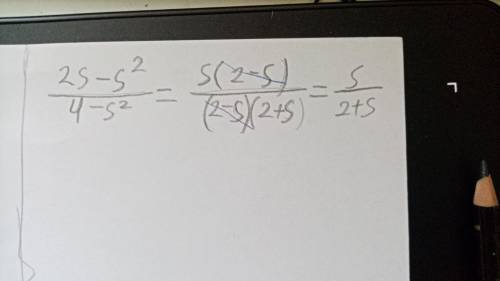 (2s - s²)/(4 - s²) = s(2-s)/((2-s)(2+s)) = s/(2+s)